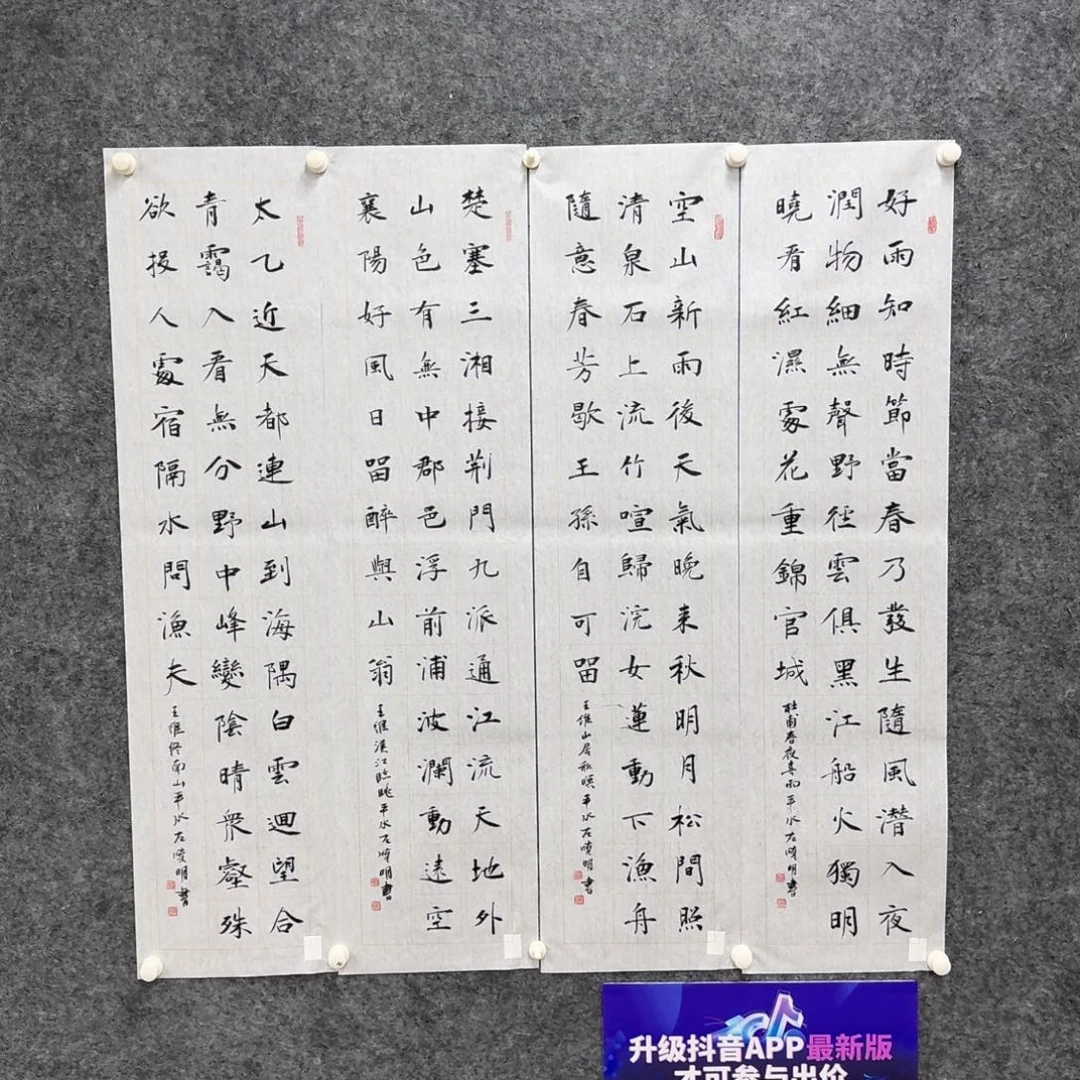 好雨知時節當春乃發生隨風潛入夜
潤物細無聲野徑雲俱黑江船火獨明
曉看紅濕處花重錦官城
杜甫春夜喜雨平水左曉明書
空山新雨後天氣晚来秋明月松間照
清泉石上流竹喧歸浣女蓮動下漁舟
隨意春芳歇王孫自可留
王維山居秋暝平水左曉明書
楚塞三湘接荆門九派通江流天地外
山色有無中郡邑浮前浦波瀾動遠空
襄陽好風日留醉與山翁
王維漢江臨眺平水左曉明書
太乙近天都連山到海隅白雲迴望合
青靄入看無分野中峰變陰晴衆壑殊
欲投人處宿隔水問漁夫
王維終南山平水左曉明書
升级抖音APP最新版
才可参与出价